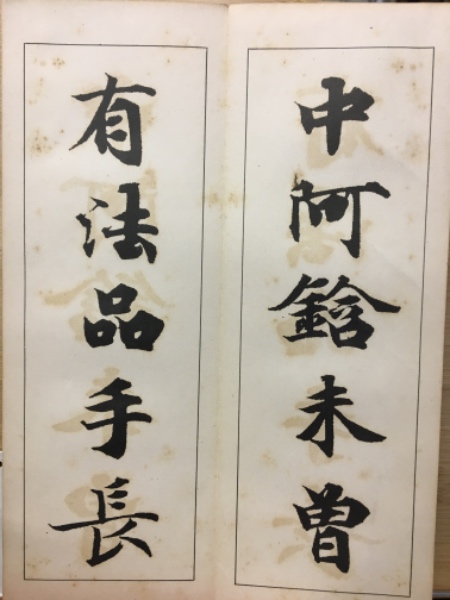 中阿鋡未曽
有法品手長